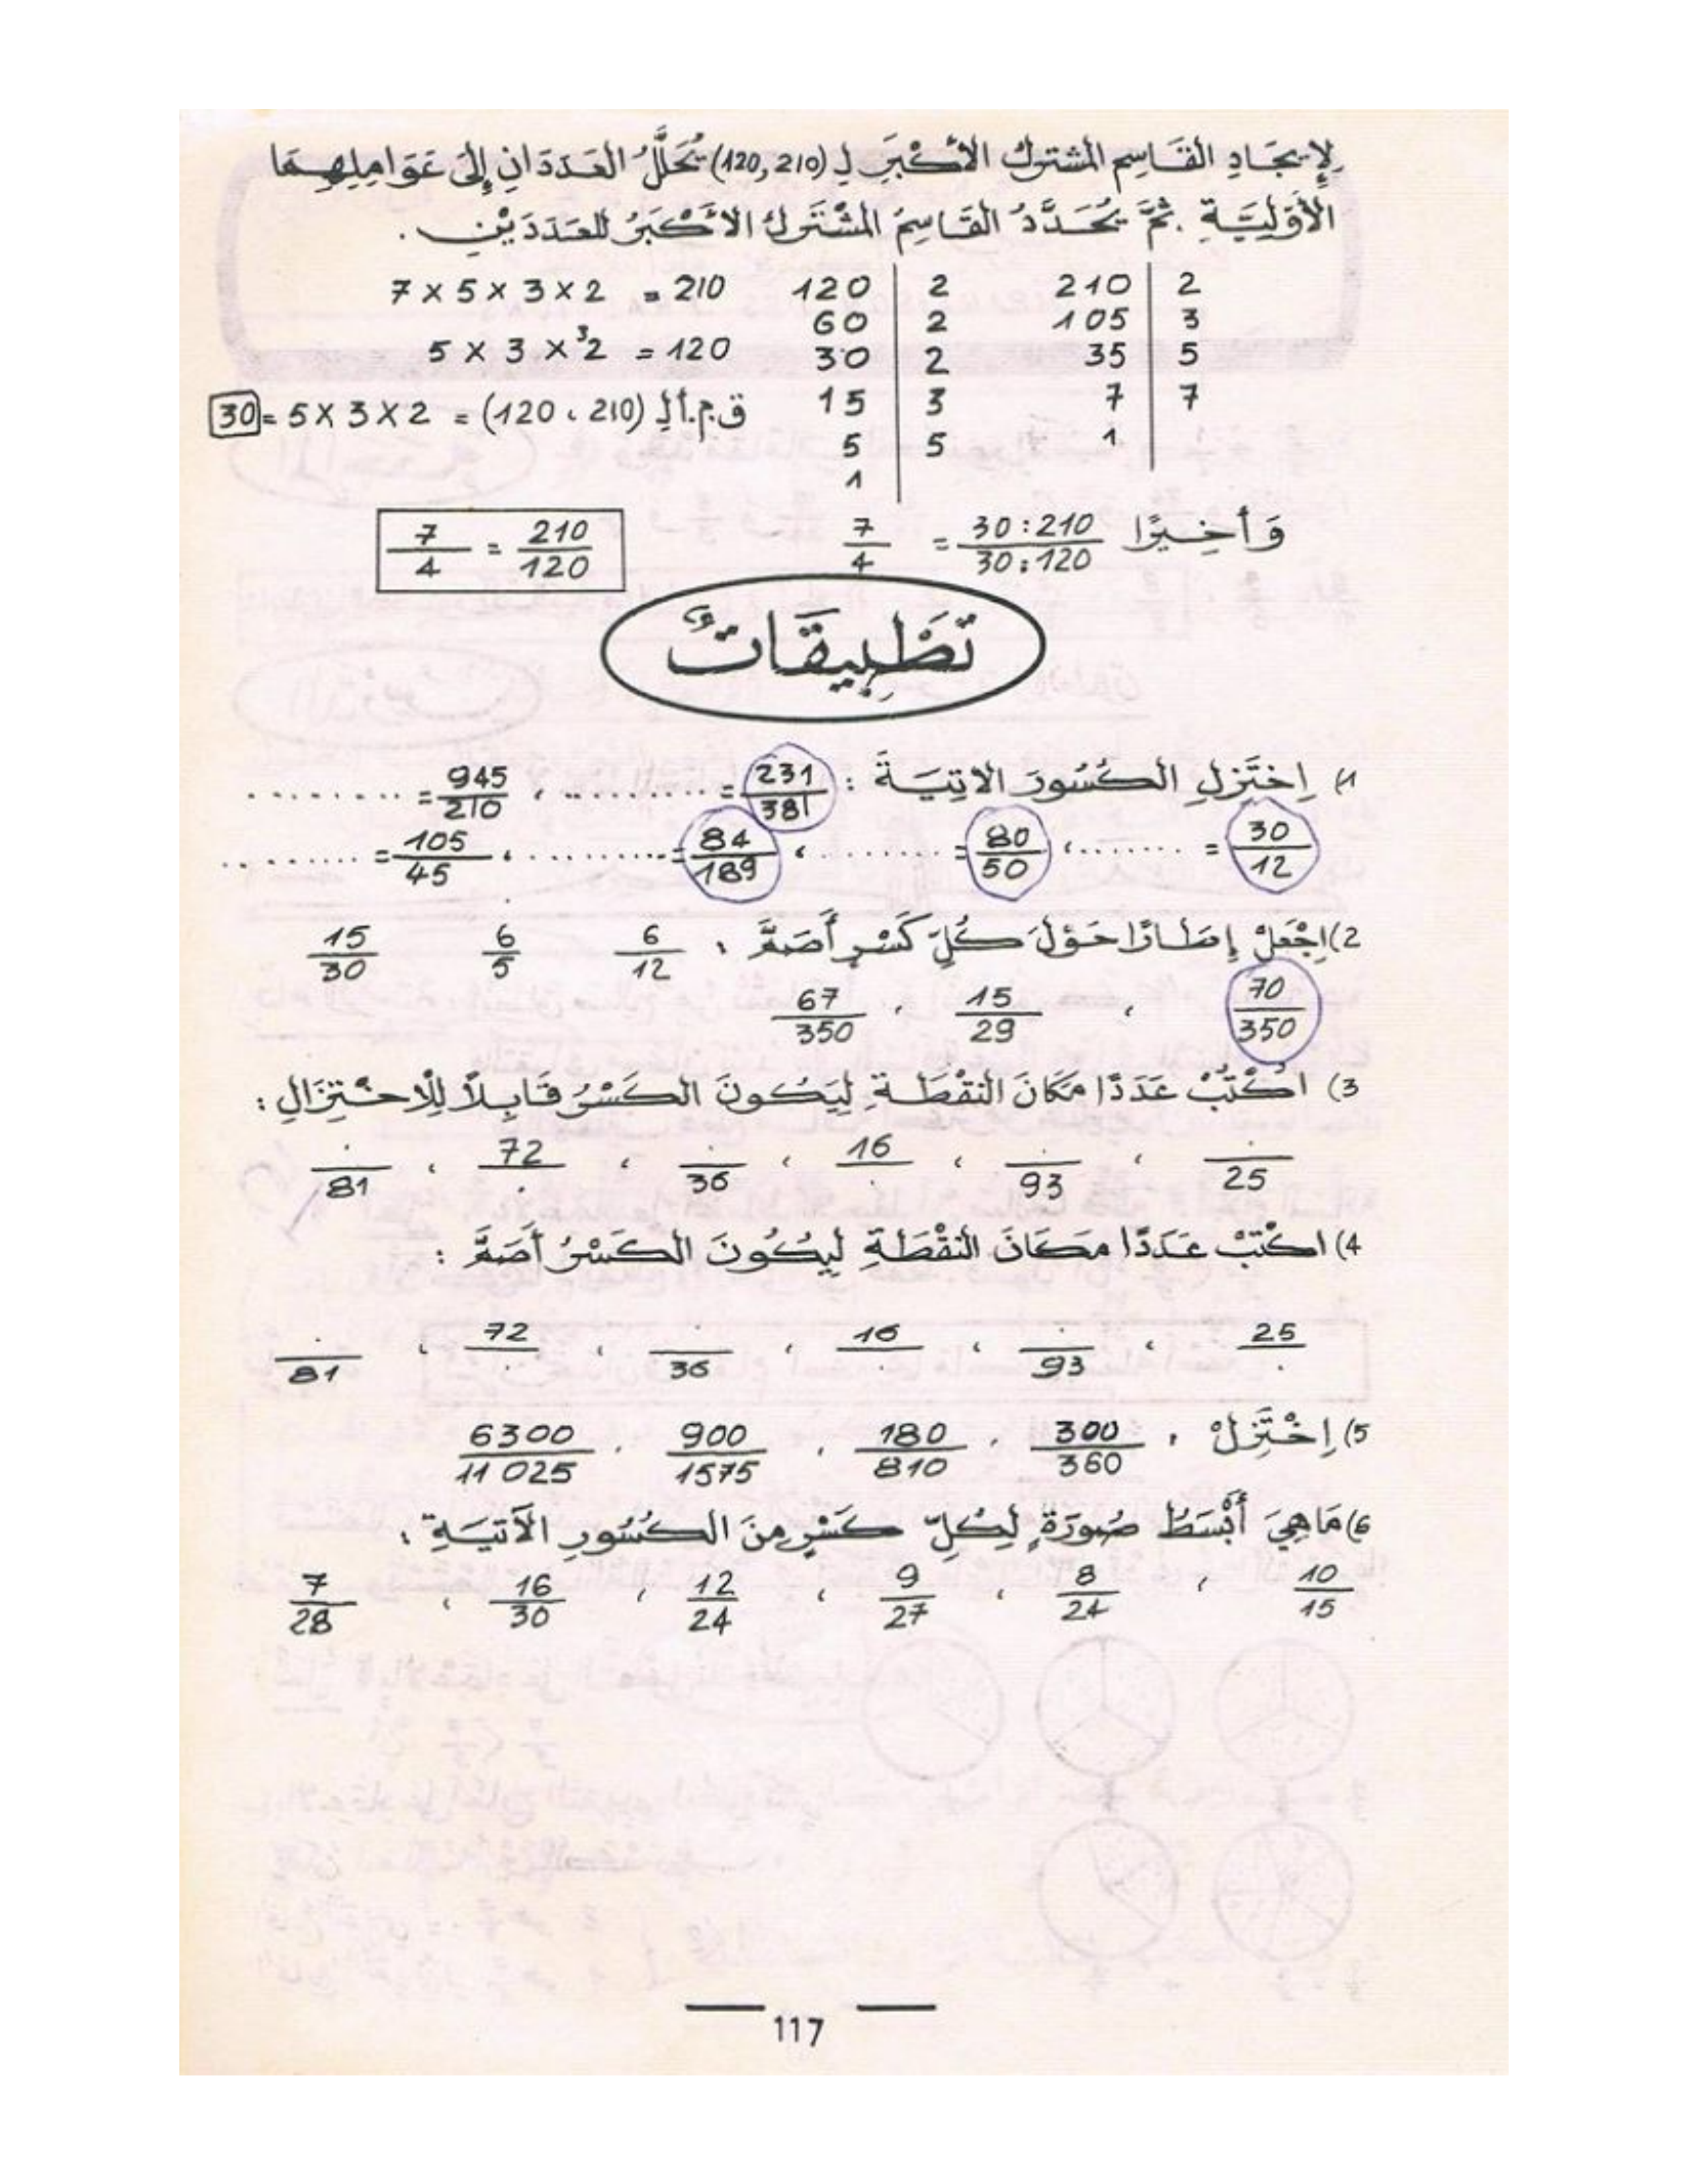 لِإِيجَادِ القَاسِمِ المُشتركِ الأَكْبَرِ لِـ (120,210) يُحَلَّلُ العَدَدَانِ إِلَى عَوَامِلِهِمَا
الأَوَّلِيَّةِ . ثُمَّ يُحَدَّدُ القَاسِمُ المُشْتَرَكُ الأَكْبَرُ للعَدَدَيْنِ .
7 x 5 x 3 x 2 = 210 120 | 2 210 | 2
60 | 2 105 | 3
5 x 3 x 2³ = 120 30 | 2 35 | 5
30 = 5 x 3 x 2 = (120 ، 210) ق.م.أ لِـ 15 | 3 7 | 7
5 | 5 1
1
وَأَخِيرًا 30:210/30:120 = 7/4 210/120 = 7/4
تَطْبِيقَاتٌ
1) اِخْتَزِلِ الكُسُورَ الاتِيَةَ : 231/381 = .......... ، 945/210 = ..........
30/12 = ........ ، 80/50 = ........ ، 84/189 = .......... ، 105/45 = ..........
2) اِجْعَلْ إِطَارًا حَوْلَ كُلِّ كَسْرٍ أَصَمَّ : 6/12 6/5 15/30
70/350 ، 15/29 ، 67/350
3) اكْتُبْ عَدَدًا مَكَانَ النقْطَةِ لِيَكُونَ الكَسْرُ قَابِلاً لِلْاخْتِزَالِ :
./25 ، ./93 ، 16/. ، ./36 ، 72/. ، ./81
4) اكْتُبْ عَدَدًا مَكَانَ النقْطَةِ لِيَكُونَ الكَسْرُ أَصَمَّ :
25/. ، ./93 ، 16/. ، ./36 ، 72/. ، ./81
5) اِخْتَزِلْ : 300/360 ، 180/810 ، 900/1575 ، 6300/11 025
6) مَا هِيَ أَبْسَطُ صُورَةٍ لِكُلِّ كَسْرٍ مِنَ الكُسُورِ الآتِيَةِ :
10/15 ، 8/24 ، 9/27 ، 12/24 ، 16/30 ، 7/28
117